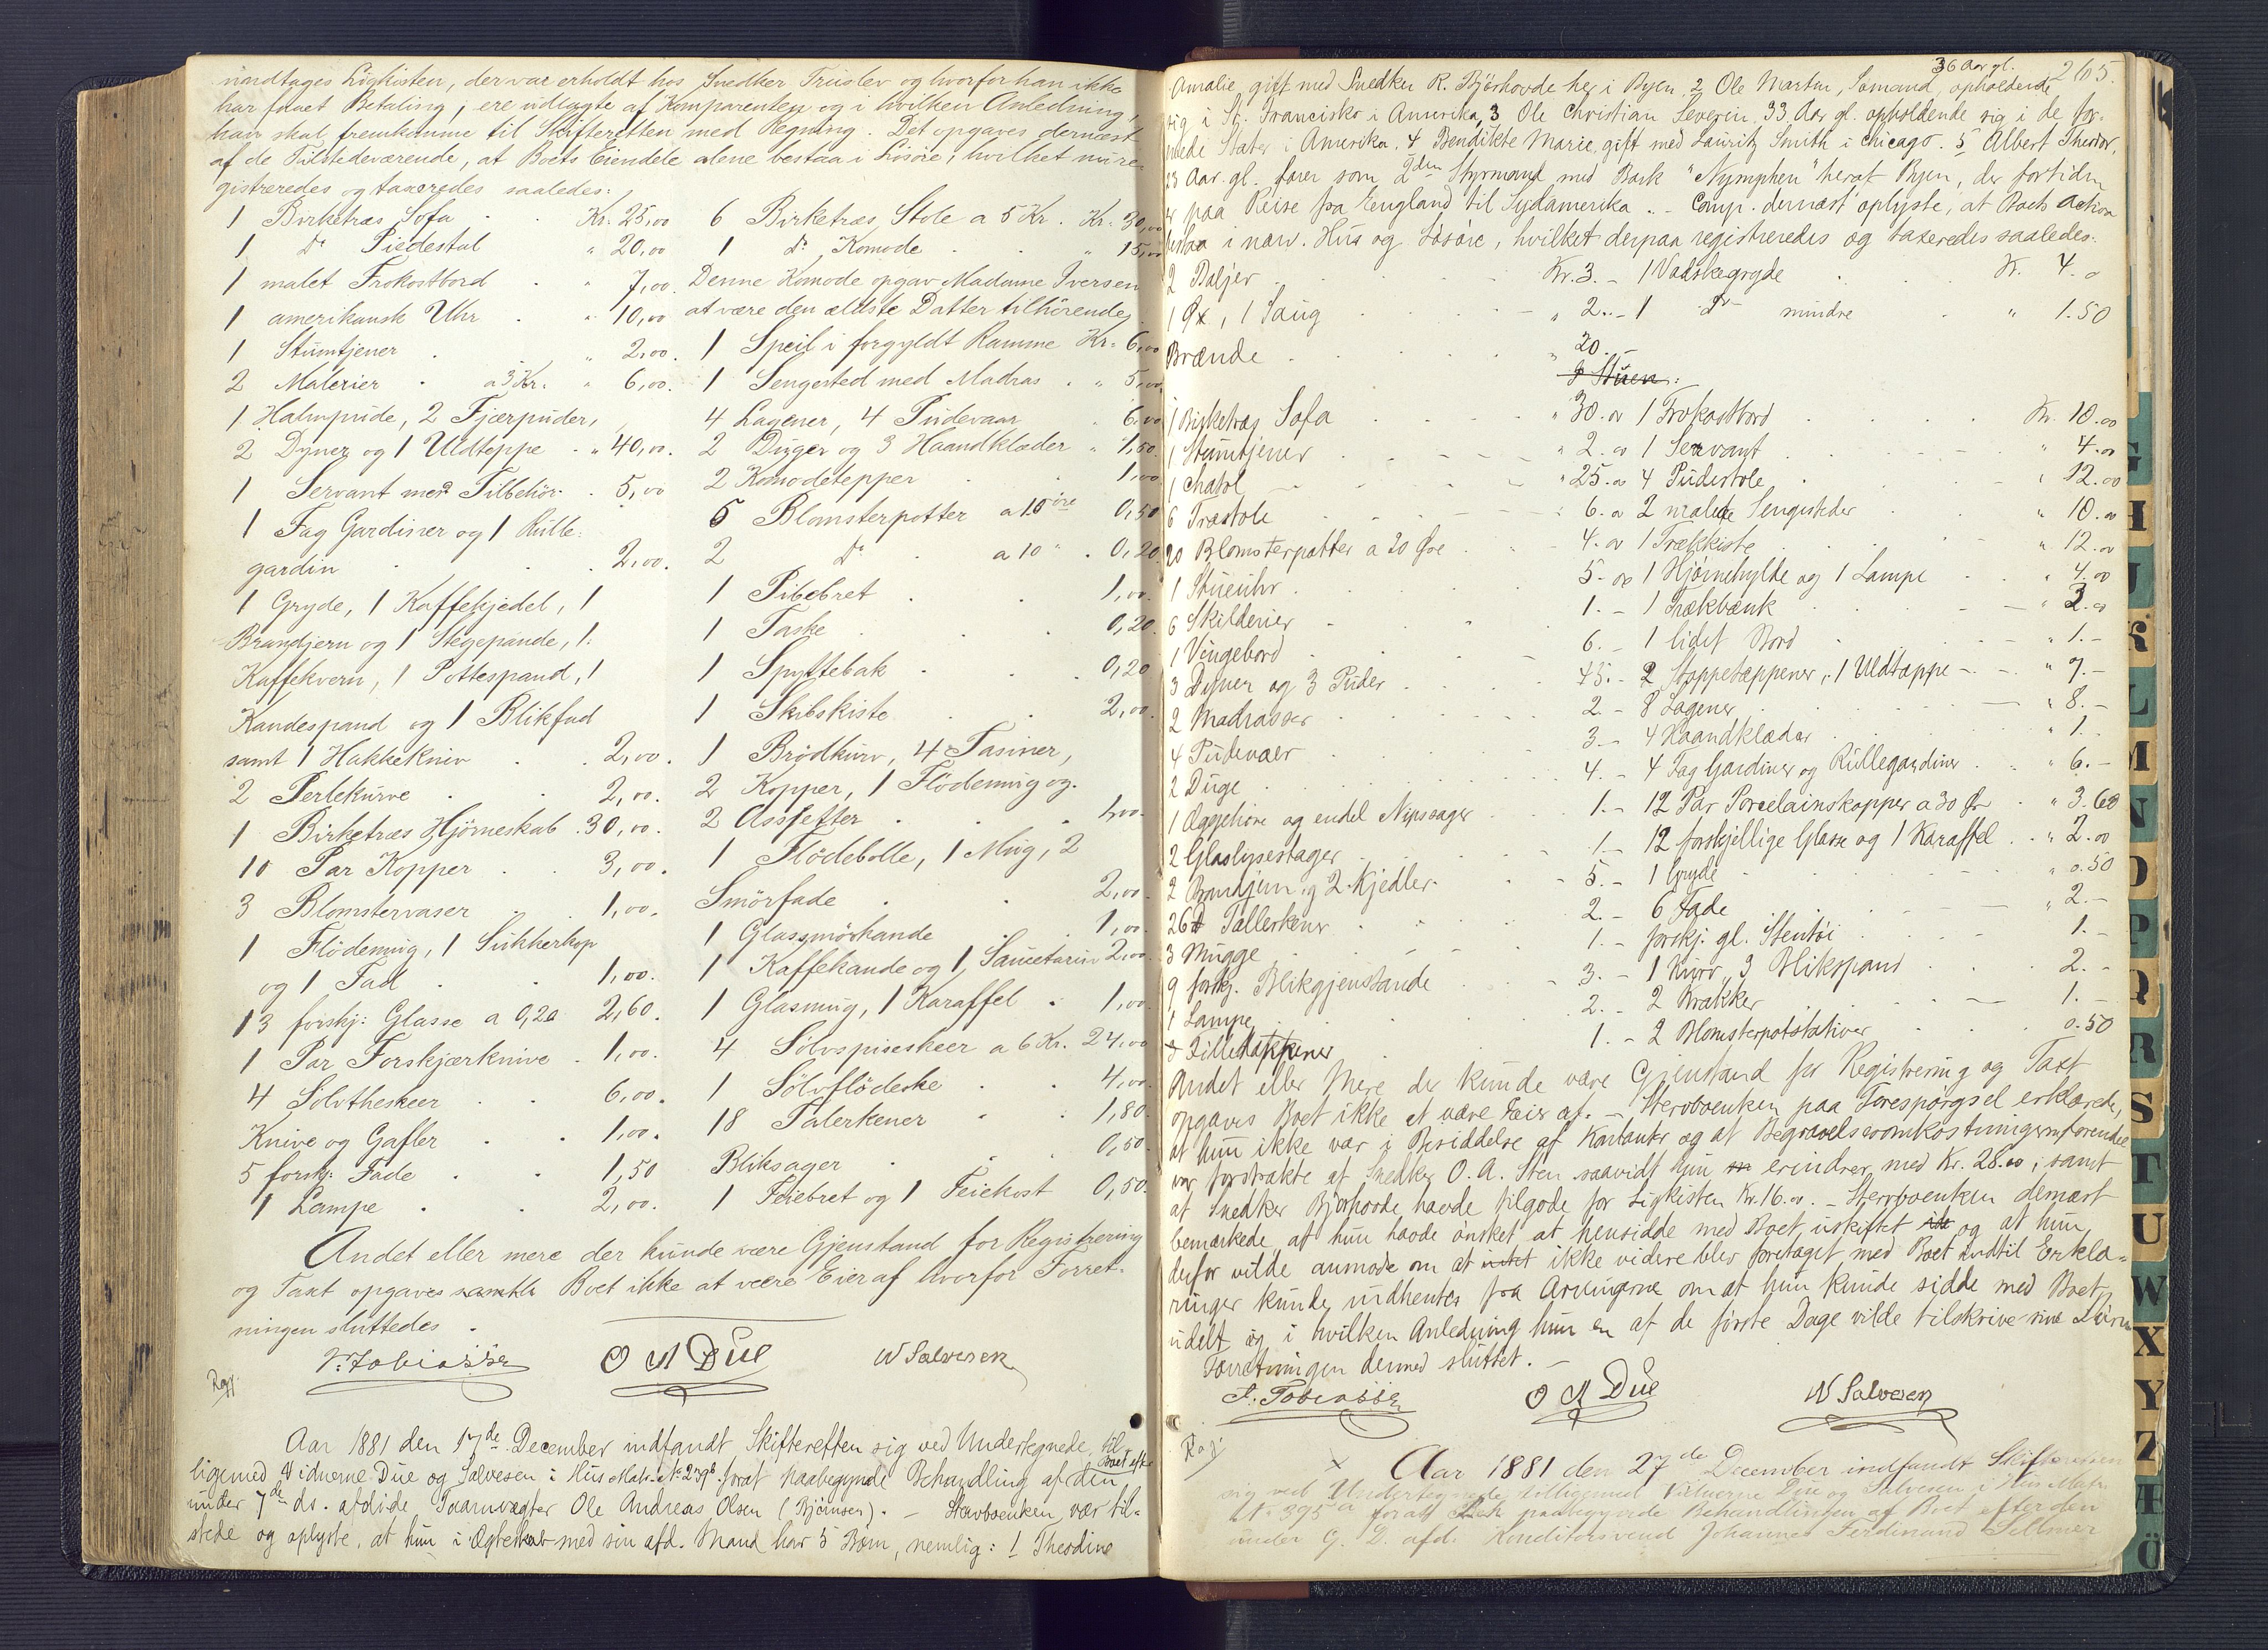 undtages Ligkisten, der var erholdt hos Snedker Truslev og hvorfor han ikke
har faaet Betaling, ere udlagte af Komparenten og i hvilken Anledning,
han skal fremkomme til Skifteretten med Regning. Det opgaves dernæst
af de Tilstedeværende, at Boets Eiendele alene bestaa i Lösöre, hvilket nu re-
gistreredes og taxeredes saaledes:
1 Birketræs Sofa . . Kr. 25,00
1 do Piedestal " 20,00
1 malet Frokostbord . " 7,00.
1 amerikansk Uhr . " 10,00
1 Stumtjener . . " 2,00.
2 Malerier . a 3 Kr. " 6,00.
1 Halmpude, 2 Fjærpuder,
2 Dyner og 1 Uldteppe . " 40,00.
1 Servant med Tilbehör . 5,00
1 Fag Gardiner og 1 Rulle-
gardin . . . 2,00.
1 Gryde, 1 Kaffekjedel, 1
Brandjern og 1 Stegepande, 1
Kaffekvern, 1 Pottespand, 1
Kandespand og 1 Blikfad
samt 1 Hakkekniv . . 2,00.
2 Perlekurve . . 2,00.
1 Birketræs Hjörneskab . 30,00.
10 Par Kopper . . 3,00.
3 Blomstervaser . . 1,00.
1 Flödemug, 1 Sukkerkop
og 1 Fad . . 1,00.
13 forskj: Glasse a 0,20 2,60.
1 Par Forskjærknive . 1,00.
4 Sölvtheskeer . . 6,00.
Knive og Gafler . . 1,00.
5 forskj: Fade . . 1,50
1 Lampe . . 2,00.
6 Birketræs Stole a 5 Kr. Kr. 30,00
1 do Komode . . " 15,00
Denne Komode opgav Madame Iversen
at være den ældste Datter tilhörende,
1 Speil i forgyldt Ramme Kr. 6,00
1 Sengested med Madras . " 5,00
4 Lagener, 4 Pudevaar " 6,00
2 Duger og 3 Haandklæder " 1,50.
2 Komodetepper . 1,00
5 Blomsterpotter a 10 öre 0,50
2 do . a 10 " . 0,20
1 Pibebret . . 1,00.
1 Taske . . 0,20.
1 Spyttebak . . 0,20
1 Skibskiste . . 2,00.
1 Brödkurv, 4 Tasiner,
2 Kopper, 1 Flödemug og
2 Assietter . .
1 Flödebolle, 1 Mug, 2
Smörfade . . 2,00.
1 Glassmörkande . 1,00.
1 Kaffekande og 1 Saucetarin 2,00.
1 Glasmug, 1 Karaffel . 1,00
4 Sölvspiseskeer a 6 Kr. 24,00
1 Sölvflödeske . . 4,00.
18 Talerkener . . 1,80.
Bliksager . . 0,50.
1 Feiebret og 1 Feiekost 0,50.
Andet eller mere der kunde være Gjenstand for Registrering
og Taxt opgaves Boet ikke at være Eier af hvorfor Forret-
ningen sluttedes.
T. Tobiassen O A Due N Salvesen
Regj.
Aar 1881 den 17de December indfandt Skifteretten sig ved Undertegnede, til-
ligemed Vidnerne Due og Salvesen i Hus Matr. No 239b forat paabegynde Behandling af Boet efter den
under 7de ds. afdöde Taarnvægter Ole Andreas Olsen (Bjørnsen). - Stervboenken var til-
stede og oplyste, at hun i Ægteskab med sin afd. Mand har 5 Børn, nemlig: 1 Theodine
265.
Amalie, gift med Snedker R. Bjørhovde her i Byen, 2 Ole Martin, Sømand, 36 Aar gl. opholdende
sig i St. Francisko i Amerika, 3 Ole Christian Severin, 33 Aar gl. opholdende sig i de for-
enede Stater i Amerika, 4 Bendikte Marie, gift med Lauritz Smith i Chicago. 5 Albert Theodor,
23 Aar gl. farer som 2den Styrmand med Bark "Nymphen" heraf Byen, der fortiden
er paa Reise fra England til Sydamerika. - Comp. dernæst oplyste, at Boets Activa
bestaa i nærv. Hus og Løsøre, hvilket derpaa registreredes og taxeredes saaledes:
2 Baljer . . . Kr. 3. - 1 Vadskegryde . . Kr. 4.0
1 Øx, 1 Saug . . . " 2. - 1 do mindre . " 1.50
Brænde . . . " 20. -
I Stuen:
1 Birketræs Sofa . . . " 30.00 1 Frokostbord . . Kr. 10.00
1 Stumtjener . . . " 2.00 1 Servant . . " 4.00
1 Chatol . . . " 25.00 4 Pudestole . . " 12.00
6 Træstole . . . " 6.00 2 malede Sengesteder . . " 10.00
20 Blomsterpotter a 20 Øre . . 4.00 1 Trækkiste . . " 12.00
1 Stueuhr . . . 5.00 1 Hjørnehylde og 1 Lampe . . " 4.00
6 Skilderier . . . 1. - 1 Trækbænk . . " 3.00
1 Vingebord . . . 6. - 1 lidet Bord . . " 1. -
3 Dyner og 3 Puder . . . 45. - 2 Stoppetæppener, 1 Uldtæppe - " 7. -
2 Madrasser . . . 2 - 8 Lagener . . " 8. -
4 Pudevaer . . . 3. - 4 Haandklæder . . " 1. -
2 Duge . . . 4. - 4 Fag Gardiner og Rullegardiner . . " 6. -
1 Æggehøne og endel Nipssager . . . 1. - 12 Par Porcelainskopper a 30 Ør . " 3.60
2 Glaslysestager . . . 1 - 12 forskjellige Glasse og 1 Karaffel . . " 2.00
2 Brandjern og 2 Kjedler . . . 5. - 1 Gryde . . " 0.50
26 Tallerkener . . . 2. - 6 Fade . . " 2. -
3 Mugge . . . 1. - forskj. gl. Stentøi . . 1. -
9 forskj. Blikgjenstande . . . 3. - 1 Kurv, 3 Blikspand . . 2. -
1 Lampe . . . 2. - 2 Krakker . . 1. -
Filletæppener . . 1. - 2 Blomsterpotstativer . . 0.50
Andet eller Mere der kunde være Gjenstand for Registrering og Taxt
opgaves Boet ikke at være Eier af. - Stervboenken paa Forespørgsel erklærede,
at hun ikke var i Besiddelse af Kontanter og at Begravelsesomkostningerne forøvrigt
var forstrakte af Snedker O. A. Sten saavidt hun erindrer med Kr. 28.00, samt
at Snedker Bjørhovde havde tilgode for Ligkisten Kr. 16.00. - Stervboenken dernæst
bemærkede, at hun havde ønsket at hensidde med Boet uskiftet og at hun
derfor vilde anmode om at intet ikke videre blev foretaget med Boet indtil Erklæ-
ringer kunde indhentes fra Arvingerne om at hun kunde sidde med Boet
udelt og i hvilken Anledning hun en af de første Dage vilde tilskrive sine Børn
Forretningen dermed sluttet. -
T. Tobiassen O A Due N Salvesen
Regj
x Aar 1881 den 27de December indfandt Skifteretten
sig ved Undertegnede tilligemed Vidnerne Due og Salvesen i Hus Matr.
No 395a forat paabegynde Behandlingen af Boet efter den
under 9. D. afd. Konditorsvend Johannes Ferdinand Sellmer
G
H
I
J
K
L
M
N
O
P
Q
R
S
T
U
W
X
Y
Z
Æ
Ö